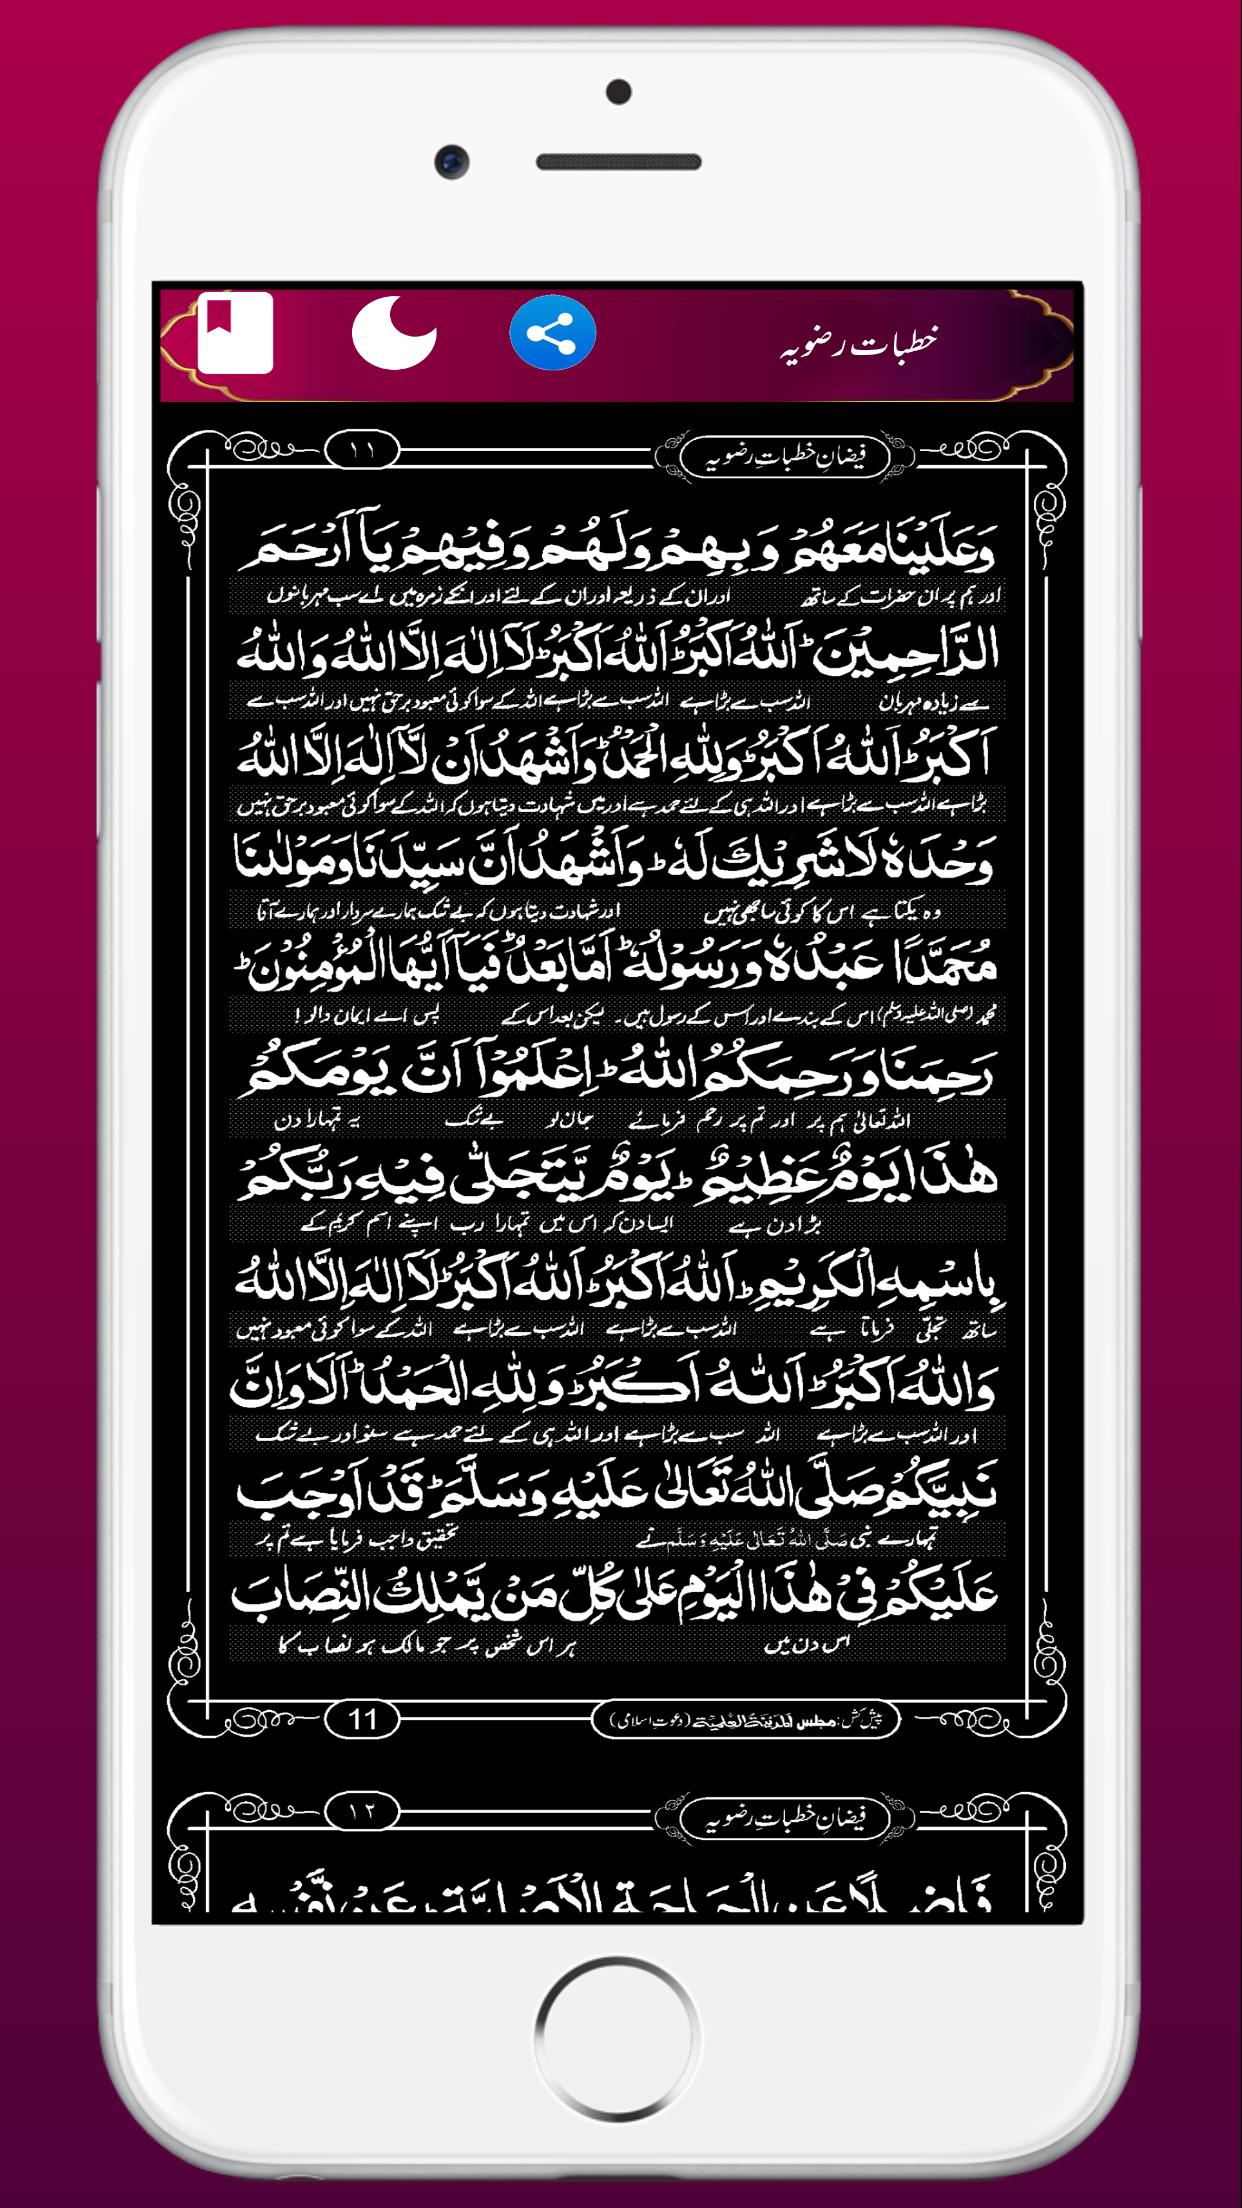 خطبات رضویہ
فیضانِ خطباتِ رضویہ
١١
وَعَلَيْنَا مَعَهُمْ وَبِهِمْ وَلَهُمْ وَفِيْهِمْ يَآ اَرْحَمَ
اور ہم پر ان حضرات کے ساتھ اور ان کے ذریعہ اور ان کے لئے اور انکے زمرہ میں اے سب مہربانوں
الرَّاحِمِيْنَ ؕ اَللّٰهُ اَكْبَرُ ؕ اَللّٰهُ اَكْبَرُ ؕ لَآ اِلٰهَ اِلَّا اللّٰهُ وَاللّٰهُ
سے زیادہ مہربان اللہ سب سے بڑا ہے اللہ سب سے بڑا ہے اللہ کے سوا کوئی معبود برحق نہیں اور اللہ سب سے
اَكْبَرُ ؕ اَللّٰهُ اَكْبَرُ ؕ وَلِلّٰهِ الْحَمْدُ ؕ وَاَشْهَدُ اَنْ لَّآ اِلٰهَ اِلَّا اللّٰهُ
بڑا ہے اللہ سب سے بڑا ہے اور اللہ ہی کے لئے حمد ہے اور میں شہادت دیتا ہوں کہ اللہ کے سوا کوئی معبود برحق نہیں
وَحْدَهٗ لَا شَرِيْكَ لَهٗ ؕ وَاَشْهَدُ اَنَّ سَيِّدَنَا وَمَوْلٰىنَا
وہ یکتا ہے اس کا کوئی ساجھی نہیں اور شہادت دیتا ہوں کہ بے شک ہمارے سردار اور ہمارے آقا
مُحَمَّدًا عَبْدُهٗ وَرَسُوْلُهٗ ؕ اَمَّا بَعْدُ ؕ فَيَآ اَيُّهَا الْمُؤْمِنُوْنَ ؕ
محمد (صلی اللہ علیہ وسلم) اس کے بندے اور اس کے رسول ہیں۔ لیکن بعد اس کے پس اے ایمان والو !
رَحِمَنَا وَرَحِمَكُمُ اللّٰهُ ؕ اِعْلَمُوْآ اَنَّ يَوْمَكُمْ
اللہ تعالیٰ ہم پر اور تم پر رحم فرمائے جان لو بے شک یہ تمہارا دن
هٰذَا يَوْمٌ عَظِيْمٌ ؕ يَوْمٌ يَّتَجَلّٰى فِيْهِ رَبُّكُمْ
بڑا دن ہے ایسا دن کہ اس میں تمہارا رب اپنے اسم کریم کے
بِاسْمِهِ الْكَرِيْمِ ؕ اَللّٰهُ اَكْبَرُ ؕ اَللّٰهُ اَكْبَرُ ؕ لَآ اِلٰهَ اِلَّا اللّٰهُ
ساتھ تجلّی فرماتا ہے اللہ سب سے بڑا ہے اللہ سب سے بڑا ہے اللہ کے سوا کوئی معبود نہیں
وَاللّٰهُ اَكْبَرُ ؕ اَللّٰهُ اَكْبَرُ ؕ وَلِلّٰهِ الْحَمْدُ ؕ اَلَا وَاِنَّ
اور اللہ سب سے بڑا ہے اللہ سب سے بڑا ہے اور اللہ ہی کے لئے حمد ہے سنو اور بے شک
نَبِيَّكُمْ صَلَّى اللّٰهُ تَعَالٰى عَلَيْهِ وَسَلَّمَ ؕ قَدْ اَوْجَبَ
تمہارے نبی صَلَّى اللّٰهُ تَعَالٰى عَلَيْهِ وَسَلَّم نے تحقیق واجب فرمایا ہے تم پر
عَلَيْكُمْ فِيْ هٰذَا الْيَوْمِ عَلٰى كُلِّ مَنْ يَّمْلِكُ النِّصَابَ
اس دن میں ہر اس شخص پر جو مالک ہو نصاب کا
پیش کش: مجلس المدینۃ العلمیۃ (دعوتِ اسلامی)
11
فیضانِ خطباتِ رضویہ
١٢
فَاضِلًا عَنِ الْحَاجَةِ الْاَصْلِيَّةِ ؕ عَنْ نَّفْسِهٖ